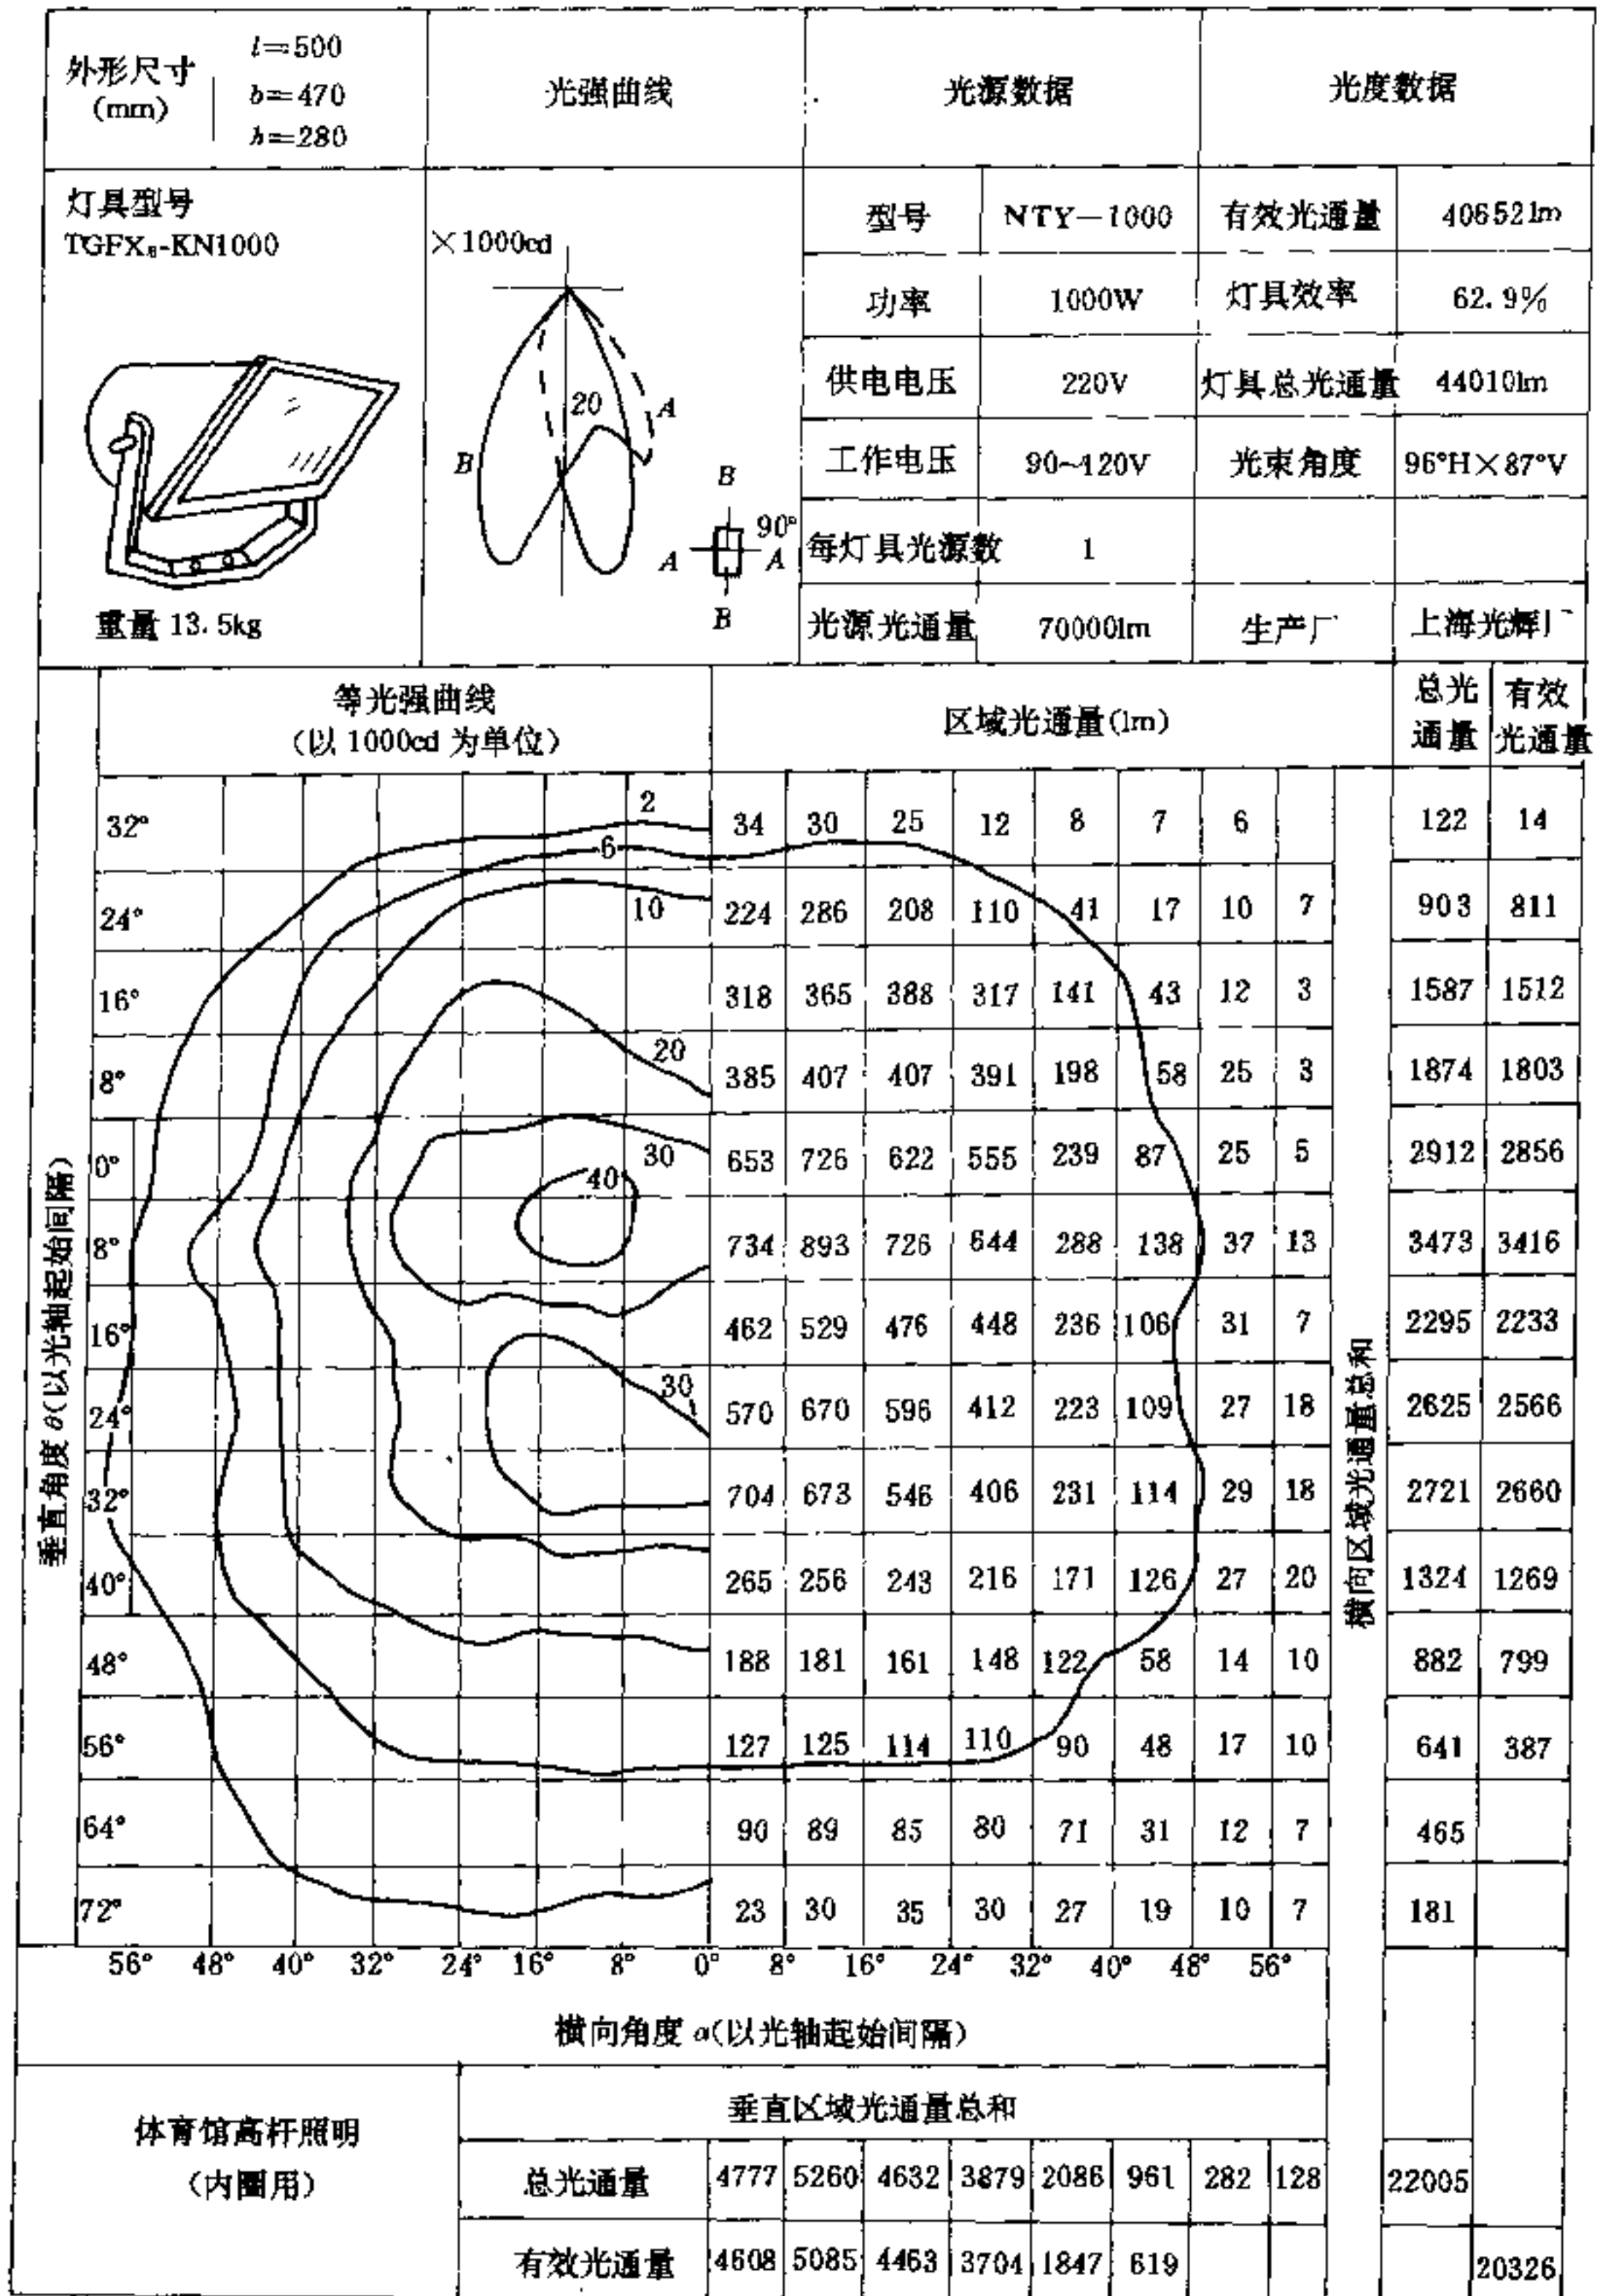 外形尺寸
(mm)
l=500
b=470
h=280
光强曲线
光源数据
光度数据
灯具型号
TGFX₈-KN1000
重量 13.5kg
×1000cd
20
A
B
B
90°
A
A
B
型号 NTY—1000 有效光通量 40652lm
功率 1000W 灯具效率 62.9%
供电电压 220V 灯具总光通量 44010lm
工作电压 90~120V 光束角度 96°H×87°V
每灯具光源数 1
光源光通量 70000lm 生产厂 上海光辉厂
等光强曲线
(以 1000cd 为单位)
区域光通量(lm)
总光
通量
有效
光通量
垂直角度 θ(以光轴起始间隔)
横向区域光通量总和
32° 2 34 30 25 12 8 7 6 122 14
6
24° 10 224 286 208 110 41 17 10 7 903 811
16° 318 365 388 317 141 43 12 3 1587 1512
8° 20 385 407 407 391 198 58 25 3 1874 1803
0° 30 653 726 622 555 239 87 25 5 2912 2856
40
8° 734 893 726 644 288 138 37 13 3473 3416
16° 462 529 476 448 236 106 31 7 2295 2233
24° 30 570 670 596 412 223 109 27 18 2625 2566
32° 704 673 546 406 231 114 29 18 2721 2660
40° 265 256 243 216 171 126 27 20 1324 1269
48° 188 181 161 148 122 58 14 10 882 799
56° 127 125 114 110 90 48 17 10 641 387
64° 90 89 85 80 71 31 12 7 465
72° 23 30 35 30 27 19 10 7 181
56° 48° 40° 32° 24° 16° 8° 0° 8° 16° 24° 32° 40° 48° 56°
横向角度 α(以光轴起始间隔)
体育馆高杆照明
(内圈用)
垂直区域光通量总和
总光通量 4777 5260 4632 3879 2086 961 282 128 22005
有效光通量 4608 5085 4463 3704 1847 619 20326